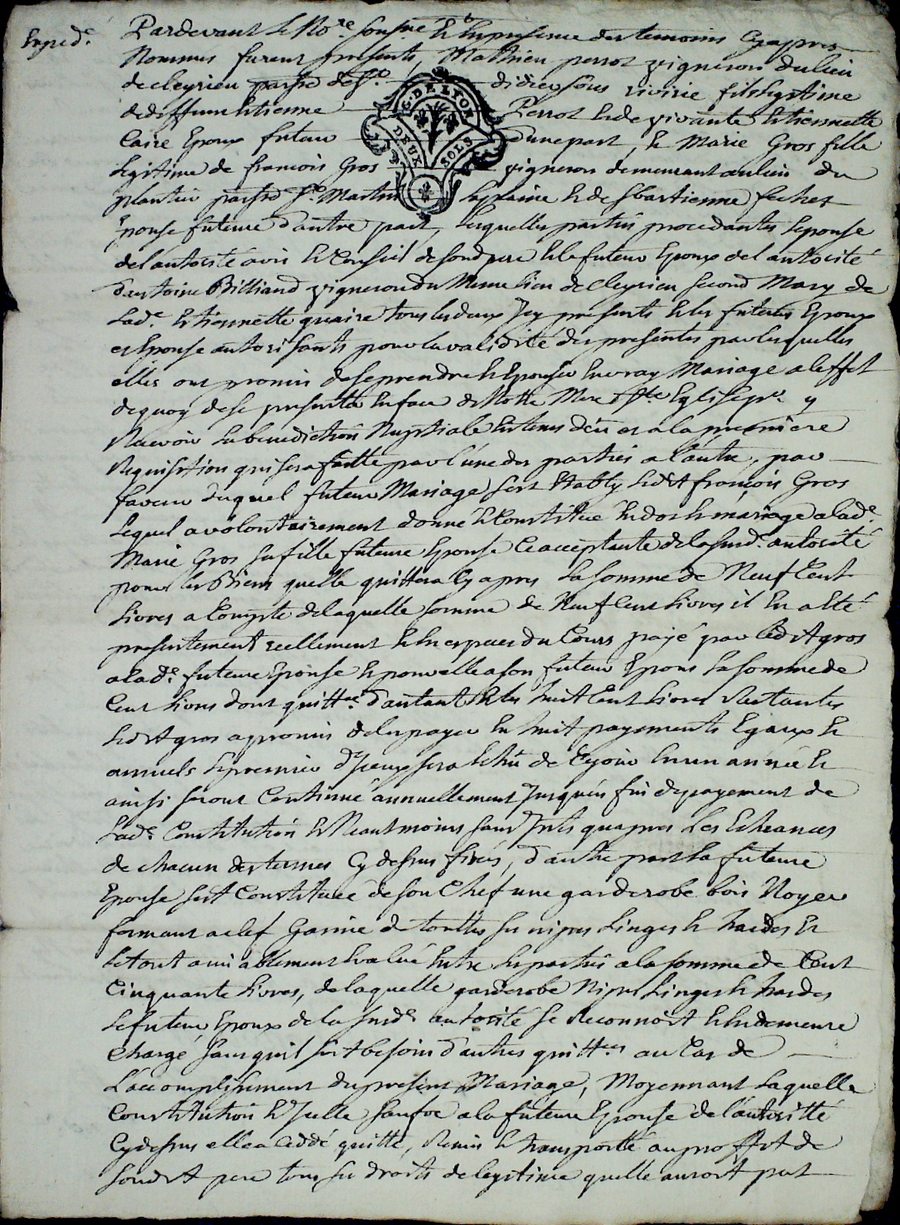 Expéd.e
Pardevant le No.re soussigné & En presence des temoins Cyapres
Nommés furent presents, Mathieu perrot vigneron du lieu
de cleyrieu parsse de S.t didier sous rivirie fils legitime
de deffunt Etienne Perrot & de vivante Etiennette
Caire Epoux futeur d'une part, & Marie Gros fille
Legitime de françois Gros vigneron demeurant au lieu du
plantin parsse St Martin Laplaine & de Sbastienne fechet
Epouse future d'autre part, Lesquelles parties procedantes l'epouse
de l'autorité avis & Conseil de sond. pere & le futeur Epoux de l'autorité
d'antoine Billiard vigneron du Meme lieu de Cleyrieu second Mary de
Lad.e Etiennette quaire tous les deux Icy presents & les futeurs Epoux
et Epouse autorisants pour la validité des presentes par lesquelles
elles ont promis de se prendre & Epouser En vray Mariage a l'effet
de quoy de se presenter En face de Notre Mere Ste Eglise pr y
Recevoir la benediction Nuptiale En tems deü et a la premiere
Requisition qui sera faitte par l'une des parties a l'autre, par
faveur duquel futeur Mariage sest Etably ledit françois Gros
Lequel a volontairement donné & Constitué En dot & mariage a lad.e
Marie Gros sa fille future Epouse Ce acceptante de la susd. autorité
pour les Biens quelle quittera Cy apres La somme de Neuf Cent
Livres a Compte de laquelle somme de Neuf Cent Livres il En a Eté
presentement reellement & En especes du Cours payé par ledit gros
a lad.e future Epouse & pour elle a son futeur Epoux La somme de
Cent livres dont quitt.ce d'autant & les huit Cent livres Restantes
Ledit gros a promis de les payer En huit payements Egaux &
annuels Le premier d'Iceux sera & Echu de Cejour En un année &
ainsi seront Continué annuellement Jusques en fin de payement de
Lad.e Constitution & Neantmoins sans Interets quapres Les Echeances
de chacun des termes Cy dessus fixés, d'autre part La future
Epouse sest Constituée de son Chef une garderobe bois Noyer
fermant a clef Garnie de touttes ses nipes Linges & hardes &
Le tout amiablement Evalué Entre Les parties a la somme de Cent
Cinquante livres, de laquelle garderobe Nipes Linges & hardes
Le futeur Epoux de la susd.e autorité se Reconnoit & En demeure
Chargé sans quil soit besoin d'autres quitt.ces au Cas de
L'accomplissement du present Mariage, Moyennant Laquelle
Constitution & Icelle sauve a la future Epouse de l'autorité
Cy dessus elle a Cedé quitté, Remis & transporté au proffit de
Soudit pere tous ses droits de legitime quelle auroit put
G. DE LYON
DEUX SOLS